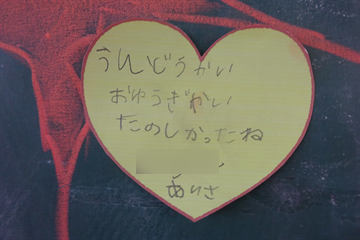 うんどうかい
おゆうぎかい
たのしかったね
あいさ